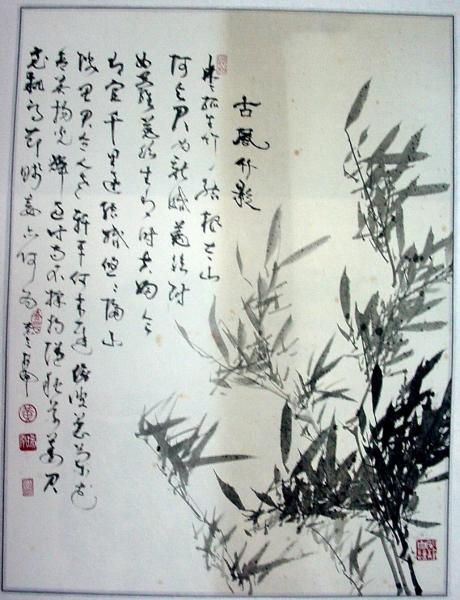 古風竹影
冉冉孤生竹結根泰山
阿與君為新婚菟絲附
女蘿菟絲生有時夫婦會
有宜千里遠結婚悠悠隔山
陂思君令人老軒車來何遲傷彼蕙蘭花
含英揚光輝過時而不採將隨秋草萎君
亮執高節賤妾亦何為